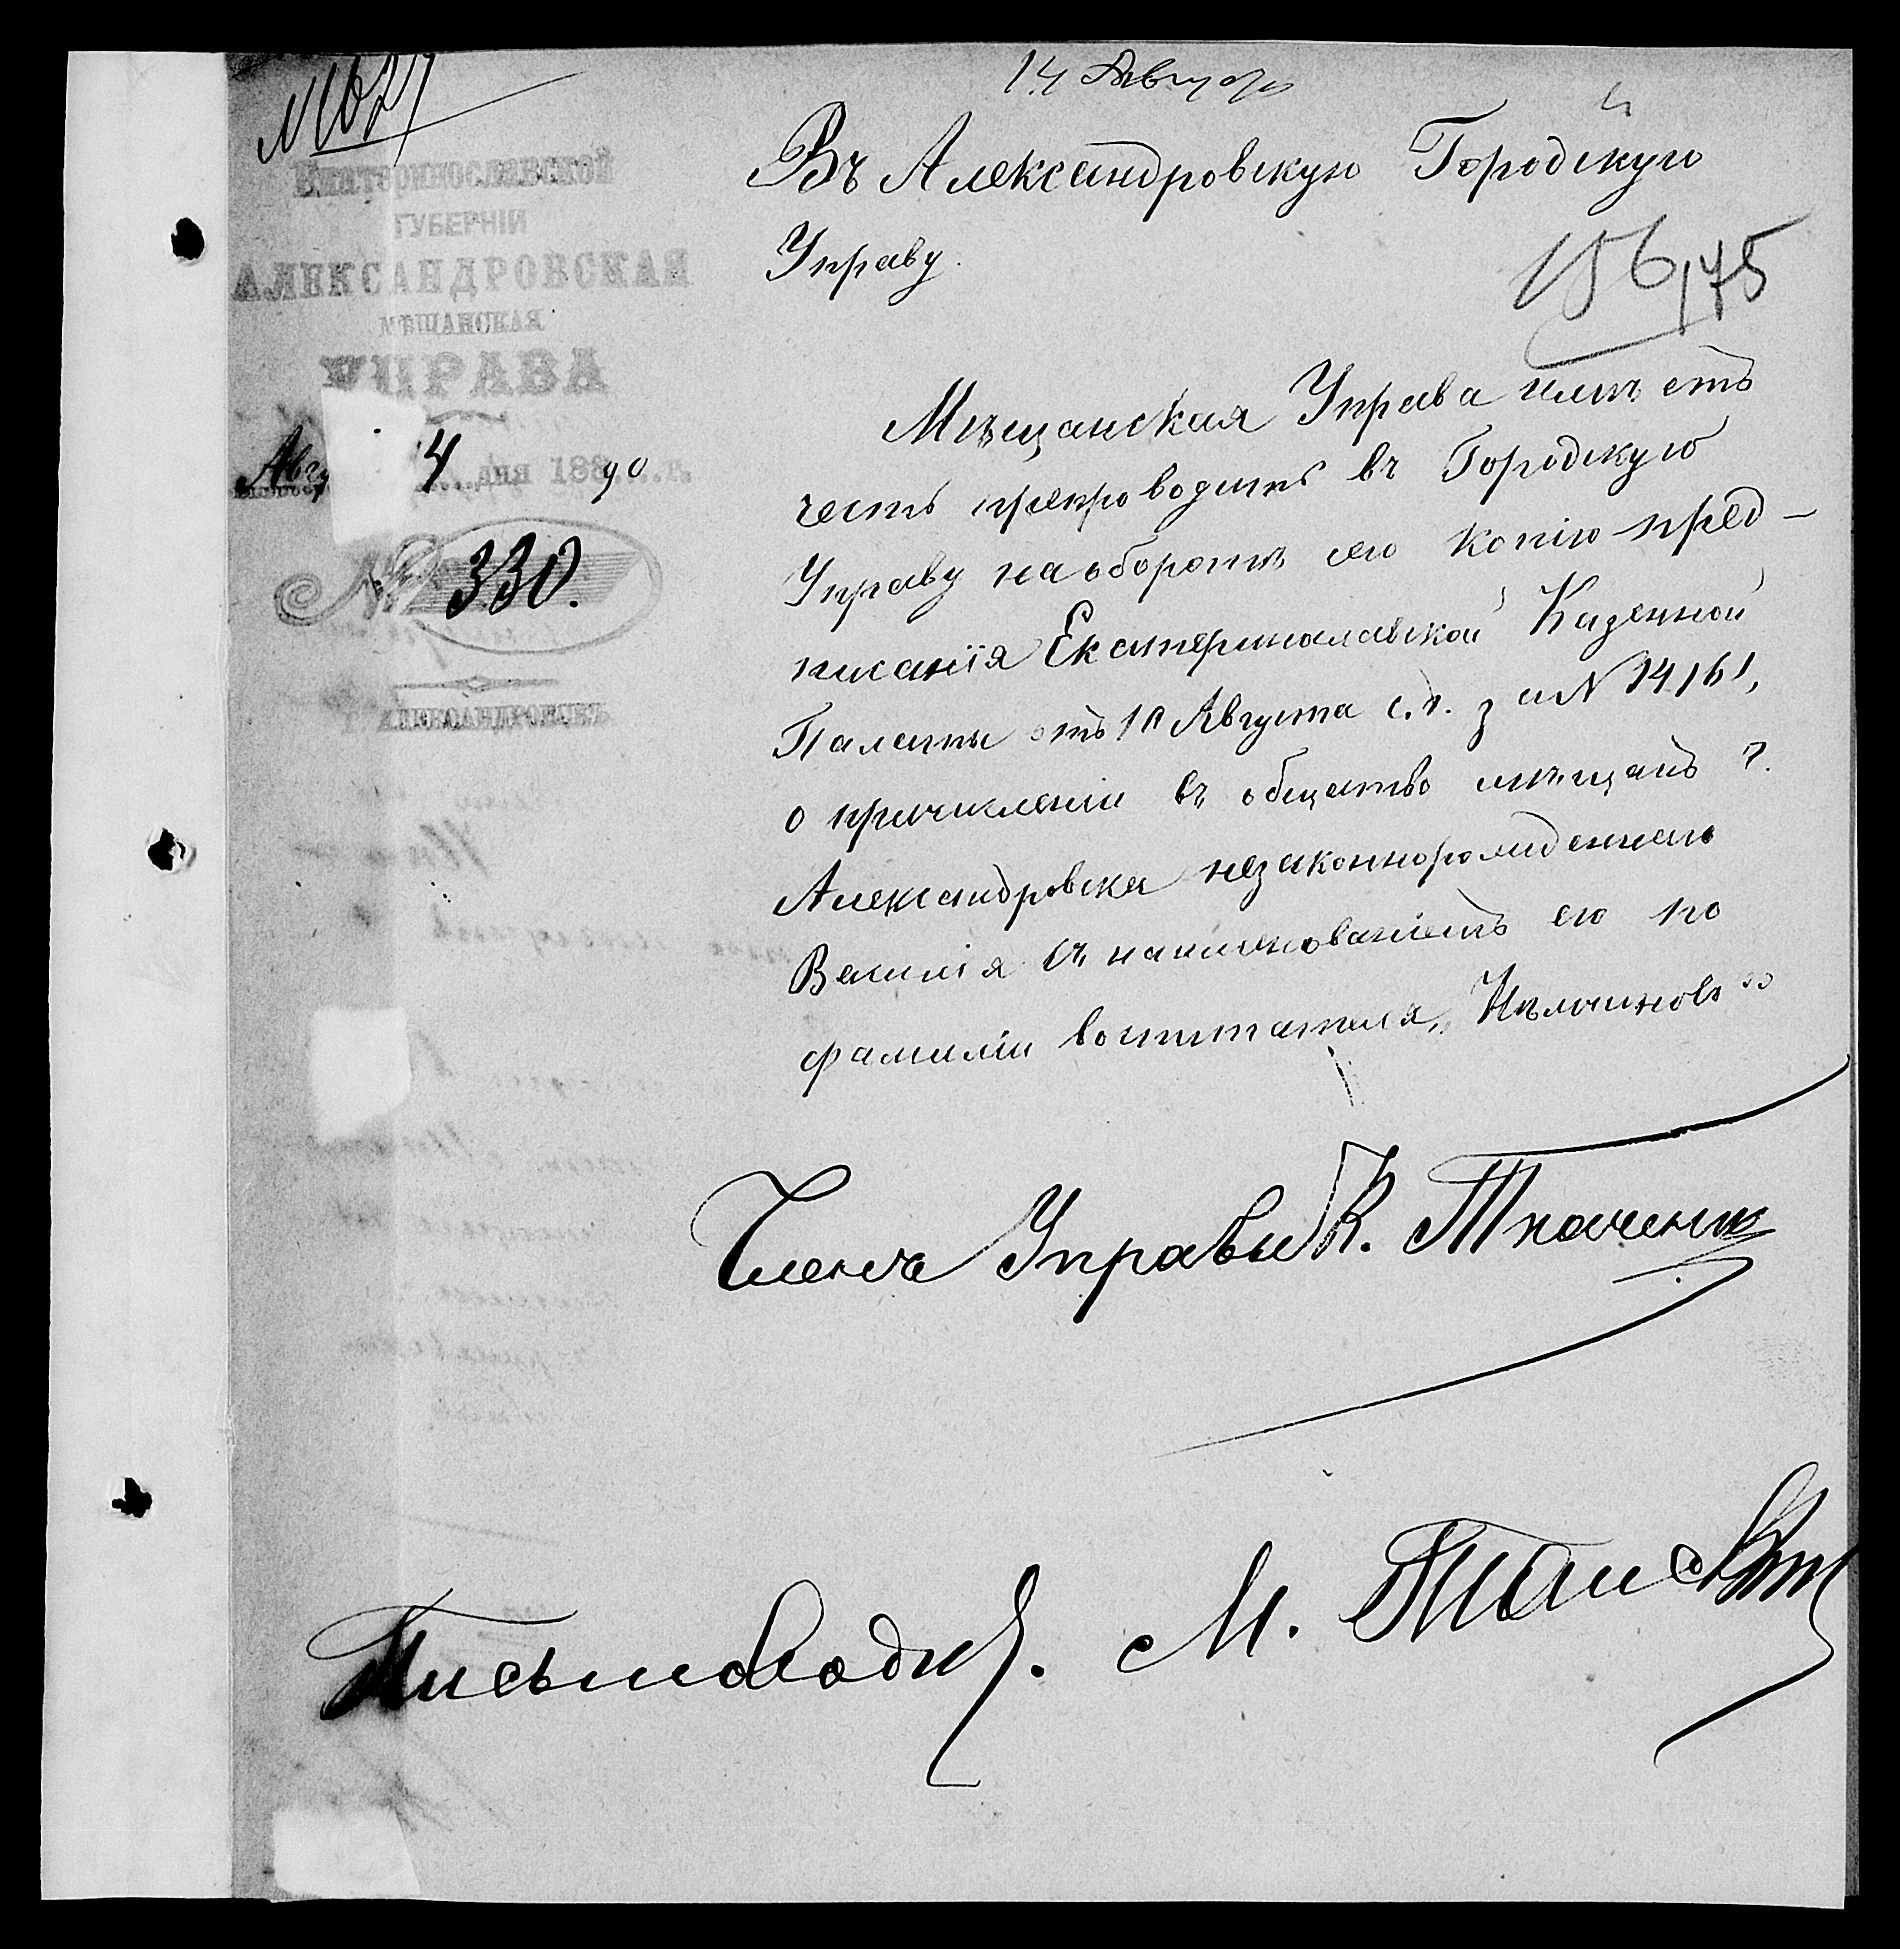 14 Августа
№ 1627
Екатеринославской
ГУБЕРНІИ
АЛЕКСАНДРОВСКАЯ
МѢЩАНСКАЯ
УПРАВА
Авгу 4 дня 188 90 г.
№ 330.
Г. АЛЕКСАНДРОВСКЪ
Въ Александровскую Городскую
Управу.
156 175
Мѣщанская Управа имѣетъ
честь препроводить въ Городскую
Управу на оборотѣ сего копію пред-
писанія Екатеринославской Казенной
Палаты отъ 10 Августа с. г. за № 14161,
о причисленіи въ общество мѣщанъ г.
Александровска незаконнорожденнаго
Василія съ наименованіемъ его по
фамиліи воспитателя
Членъ Управы К. Ткаченко
Письмоводит. М.